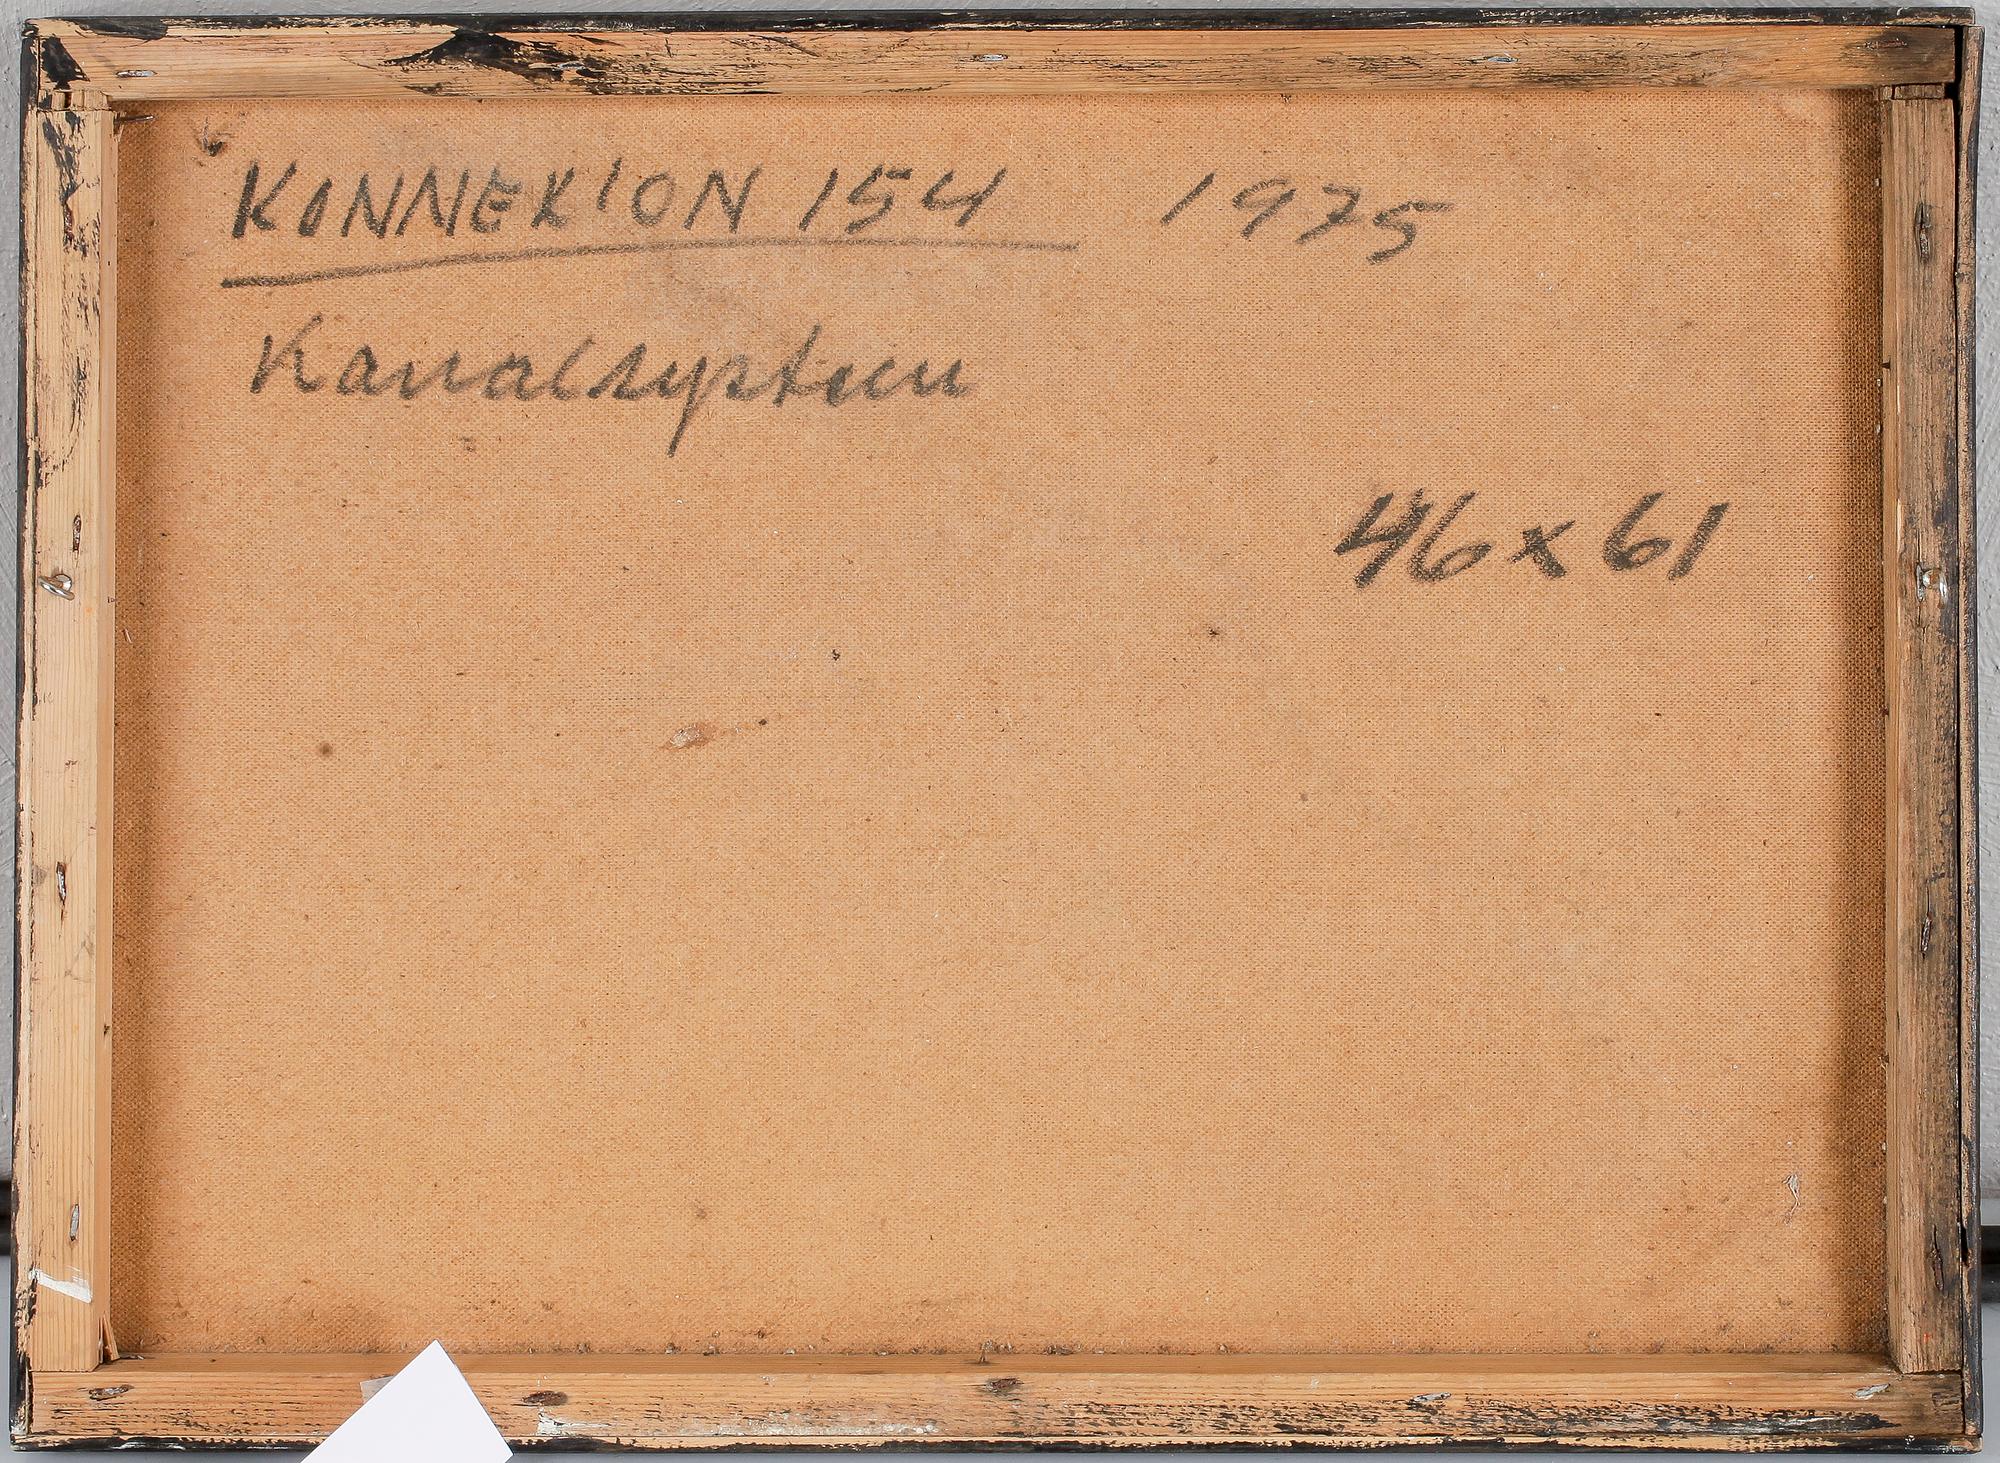 KONNEKION 154 1975
Kanalsystem
46 x 61